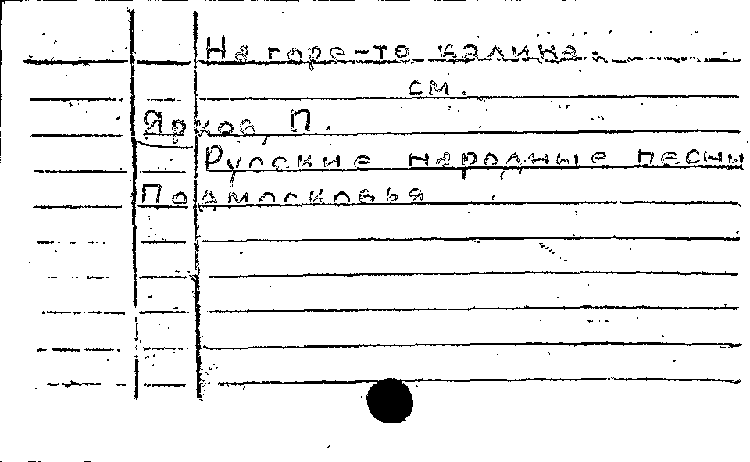 На горе-то калина.
см.
Ярков, П.
Русские народные песни
Подмосковья